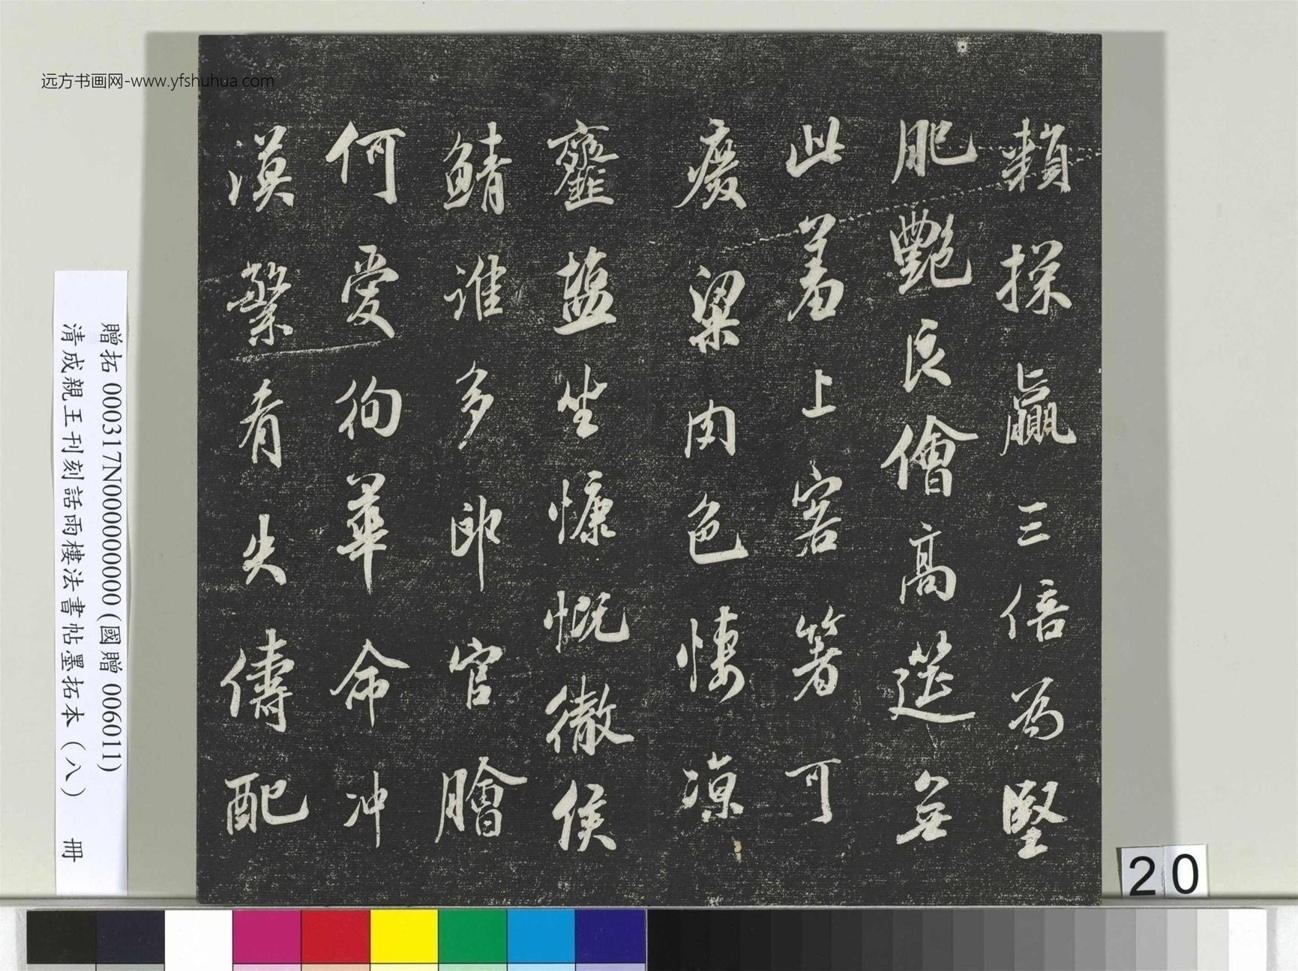 远方书画网-www.yfshuhua.com
頼採贏三倍為竪
肥艷良儈高選無
此羞上客箸可
廢粱肉色悽凉
虀鹽坐慷慨徹侯
鯖誰多郎官膾
何愛徇華命冲
漠繁有失儔配
贈拓 000317N000000000(國贈 006011)
清成親王刊刻話雨樓法書帖墨拓本(八) 冊
20